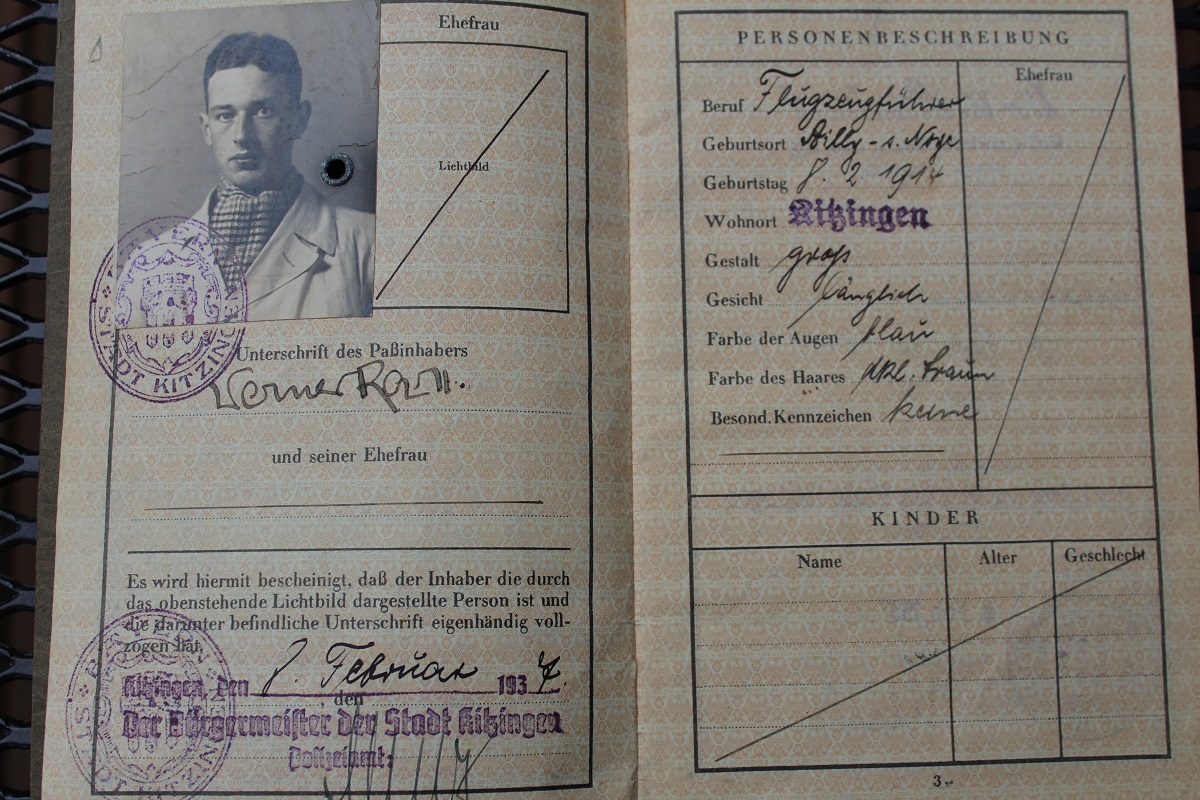 Ehefrau
Lichtbild
BAYERN
STADT KITZINGEN
Unterschrift des Paßinhabers
Werner
und seiner Ehefrau
Es wird hiermit bescheinigt, daß der Inhaber die durch
das obenstehende Lichtbild dargestellte Person ist und
die darunter befindliche Unterschrift eigenhändig voll-
zogen hat.
Kitzingen, den 8. Februar 1937.
, den
Der Bürgermeister der Stadt Kitzingen
Polizeiamt:
BAYERN
STADT KITZINGEN
PERSONENBESCHREIBUNG
Ehefrau
Beruf Flugzeugführer
Geburtsort Ailly-s. Noye
Geburtstag 8. 2 1914
Wohnort Kitzingen
Gestalt groß
Gesicht länglich
Farbe der Augen blau
Farbe des Haares dkl. braun
Besond. Kennzeichen keine
KINDER
Name Alter Geschlecht
3